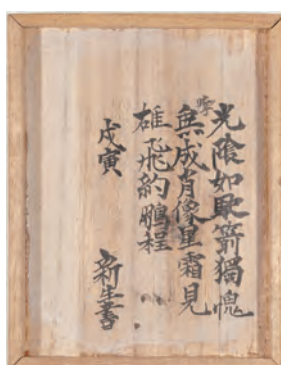 光陰如箭獨愧
學無成肖像星霜見
雄飛約鵬程
戊寅 新生書